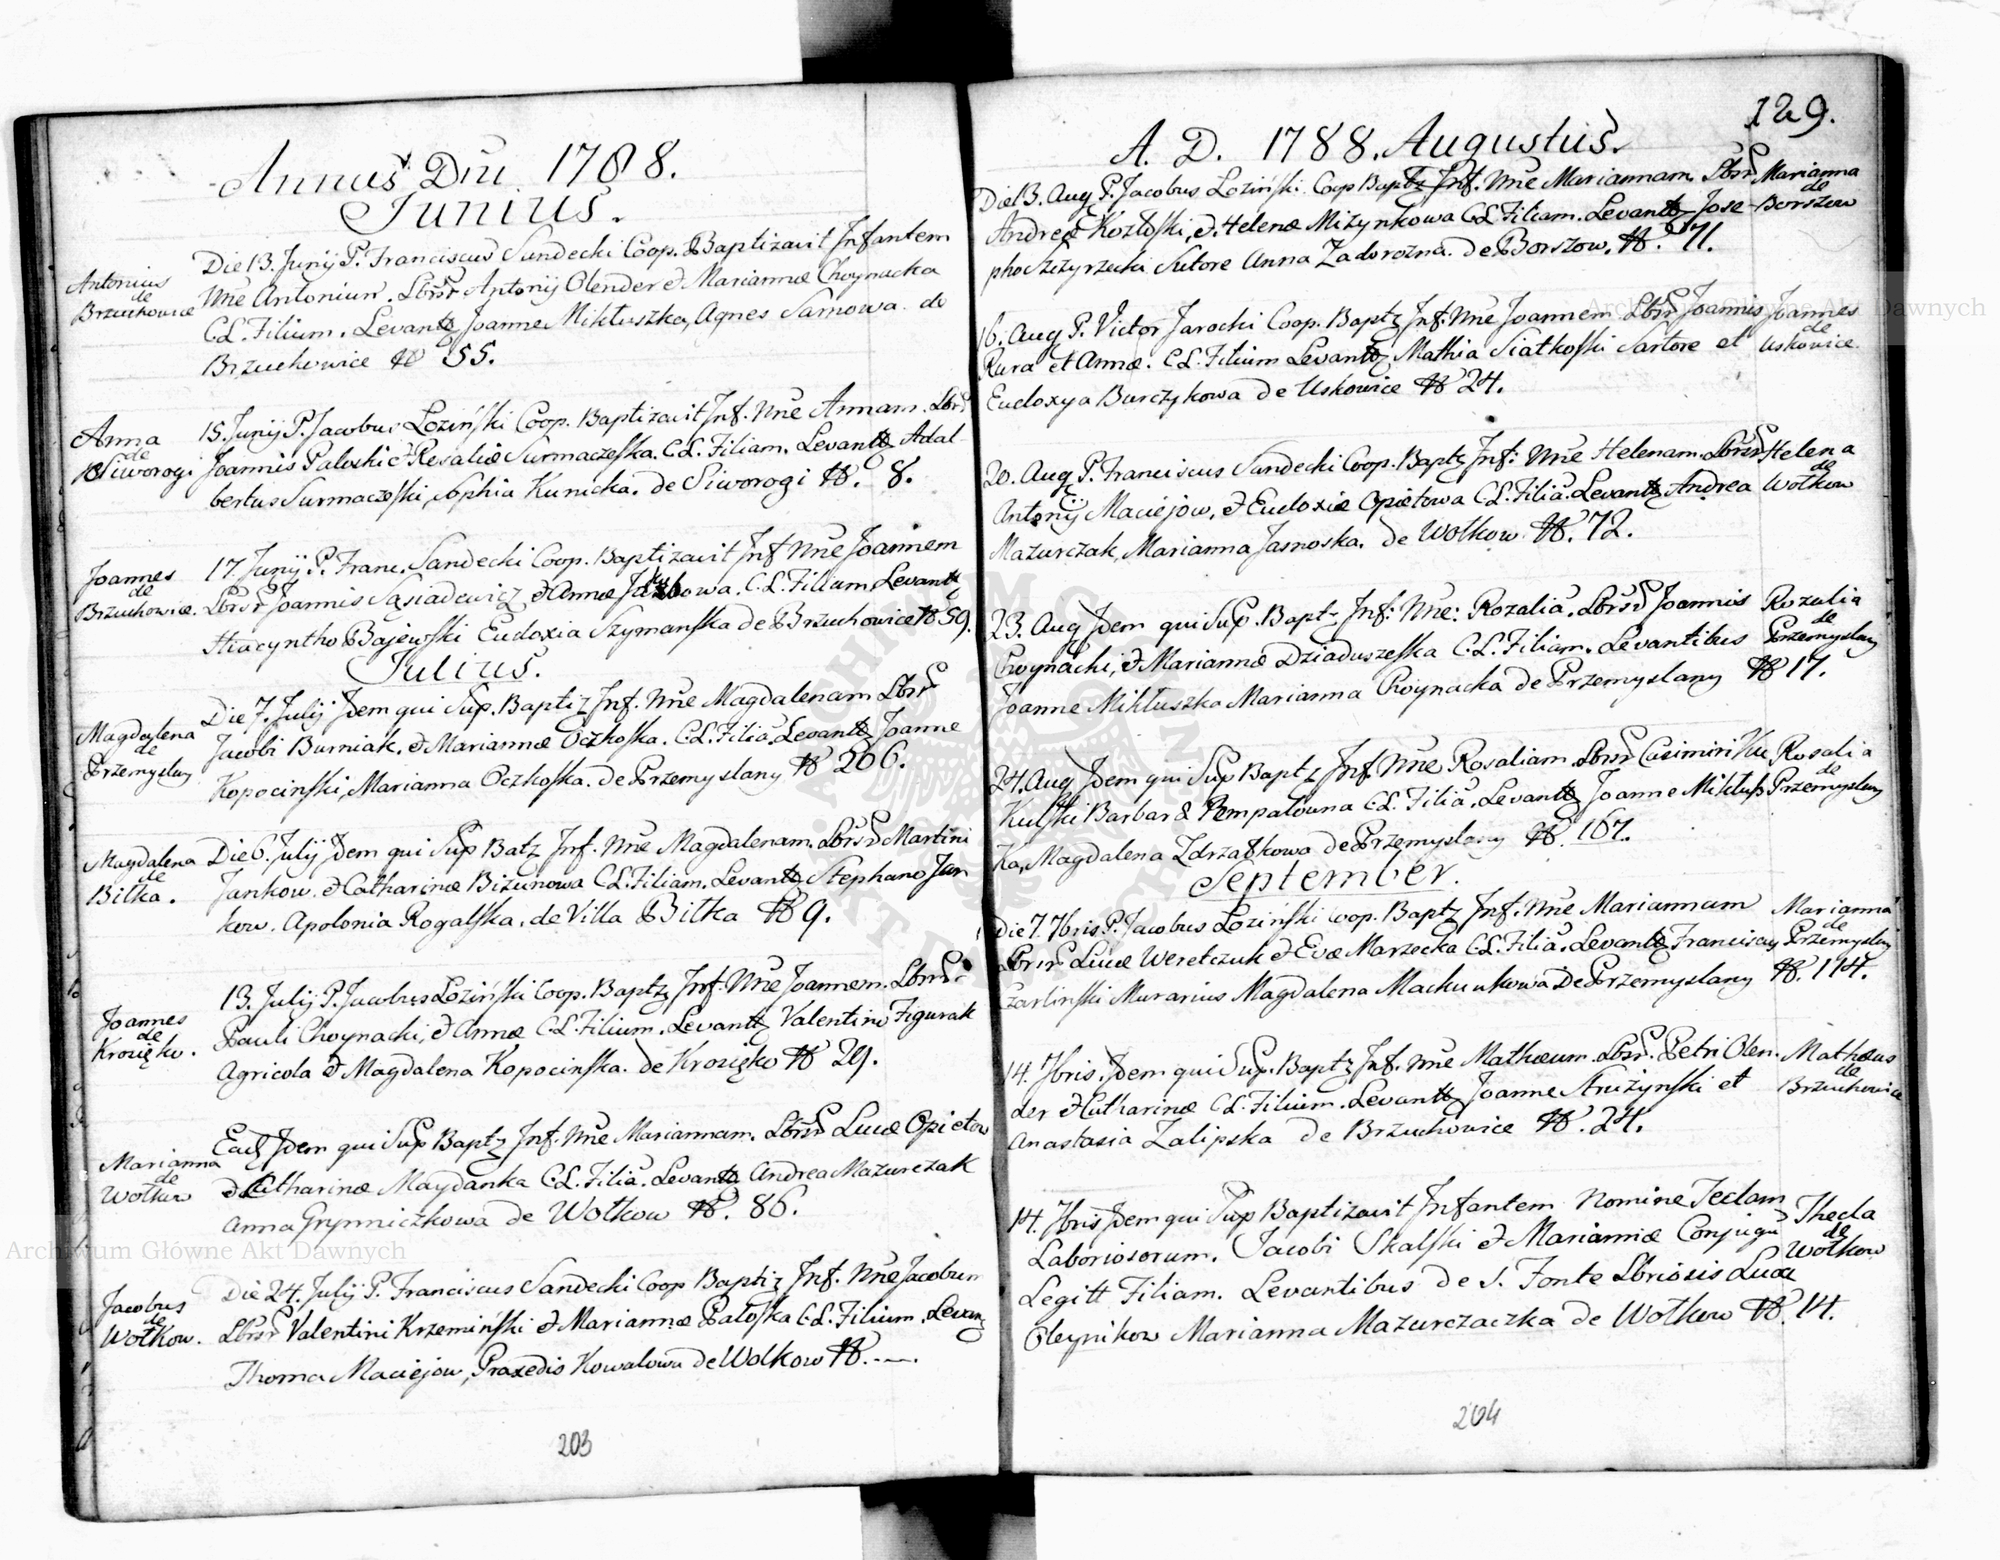 Annus Dni 1788.
Junius.
Antonius
de
Brzuchowice
Die 13. Junij P. Franciscus Sandecki Coop. Baptizavit Infantem
Nne Antonium. Lbrsr Antonij Olender & Mariannæ Choynacka
C.L. Filium. Levantb Joanne Mikłuszka, Agnes Sarnowa. de
Brzuchowice N 55.
Anna
de
Siworogi
15. Junij P. Jacobus Loziński Coop. Baptizavit Inf. Nne Annam. Lbrs
Joannis Paloski & Rosaliæ Surmaczeska. C.L. Filiam. Levantb Adal
bertus Surmaczeski, Sophia Kunicka. de Siworogi N. 8.
Joannes
de
Brzuchowice.
17. Junij. P. Franc. Sandecki Coop. Baptizavit Inf Nne Joannem
Lbrsr Joannis Sąsiadewicz & Annæ Jakubowa. C.L. Filium. Levantb
Hiacyntho Bajewski Eudoxia Szymanska de Brzuchowice N 59.
Julius.
Magdalena
de
Przemyslany
Die 7. Julij Idem qui Sup. Baptiz Inf. Nne Magdalenam Lbrsr
Jacobi Burniak. & Mariannæ Oczkoska. C.L. Filia. Levantb Joanne
Kopocinski, Marianna Oczkoska. de Przemyslany N 206.
Magdalena
de
Bitka.
Die 6. Julij Idem qui Sup Batz Inf. Nne Magdalenam. Lbrsr Martini
Jankow. & Catharinæ Bizunowa C.L. Filiam. Levantb Stephano Jan
kow. Apolonia Rogalska. de Villa Bitka N 9.
Joannes
de
Krozięko.
13. Julij P. Jacobus Loziński Coop. Baptz Inf. Nne Joannem. Lbrsr
Pauli Choynacki, & Annæ C.L. Filium. Levantb Valentino Figurak
Agricola & Magdalena Kopocinska. de Krozięko N 29.
Marianna
de
Wołkow
Ead Idem qui Sup Baptz Inf. Nne Mariannam. Lbrsr Lucæ Opietow
& Catharinæ Maydanka C.L. Filia. Levantb Andrea Mazurczak
Anna Grynniczkowa de Wołkow N. 86.
Jacobus
de
Wołkow.
Die 24. Julij P. Franciscus Sandecki Coop Baptiz Inf. Nne Jacobum
Lbrsr Valentini Krzemiński & Mariannæ Pałoska C.L. Filium. Levanb
Thoma Maciejow, Praxedis Kowalowa de Wołkow N. --.
203
129.
A. D. 1788. Augustus.
Die 13. Aug P. Jacobus Loziński Coop Baptz Inf. Nne Mariannam. Lbrsr
Andreæ Kozłoski, & Helenæ Mizynkowa C.L. Filiam. Levantb Jose
pho Szczyrzecki Sutore Anna Zadorozna. de Borszow. N. 71.
Marianna
de
Borszow
16. Aug P. Victor Jarocki Coop. Baptz Inf. Nne Joannem Lbrsr Joannis
Rura et Annæ. C.L. Filium Levantb Mathia Siatkoski Sartore et
Eudoxya Burczykowa de Uskowice N 24.
Joannes
de
Uskowice.
20. Aug P. Franciscus Sandecki Coop. Baptz Inf: Nne Helenam. Lbrsr
Antonij Maciejow, & Eudoxiæ Opietowa C.L. Filia. Levantb Andrea
Mazurczak, Marianna Jasnoska. de Wołkow N. 72.
Helena
de
Wołkow
23. Aug Idem qui Sup. Bapt. Inf: Nne: Rozalia. Lbrsr Joannis
Choynacki, & Mariannæ Dziaduszeska C.L. Filiam. Levantibus
Joanne Mikłuszka Marianna Choynacka de Przemyslany N 17.
Rozalia
de
Przemyslany
24. Aug Idem qui Sup Baptz Inf. Nne Rosaliam. Lbrsr Casimiri Ku
Kulski Barbar & Pempalowna C.L. Filia. Levantb Joanne Mikłuss
Ka, Magdalena Zdrzałkowa de Przemyslany N. 167.
Rosalia
de
Przemyslany
September.
Die 7. 7bris P. Jacobus Loziński Coop. Baptz Inf. Nne Mariannam
Lbrsr Lucæ Weretczuk & Evæ Marzecka C.L. Filia. Levantb Francisco
Czarlinski Murarius Magdalena Machunkowa De Przemyslany N. 114.
Marianna
de
Przemyslany
14. 7bris. Idem qui Sup. Baptz Inf. Nne Mathæum. Lbrsr. Petri Olen.
der & Catharinæ C.L. Filium. Levantb Joanne Struzynski et
Anastasia Zalipska de Brzuchowice N. 24.
Mathæus
de
Brzuchowice
14. 7bris Idem qui Sup Baptizavit Infantem Nomine Teclam
Laboriosorum. Jacobi Skalski & Mariannæ Conjugu
Legitt Filiam. Levantibus de S. Fonte Lbriosis Luca
Oleynikow Marianna Mazurczaczka de Wołkow N. 14.
Thecla
de
Wołkow
204
Archiwum Główne Akt Dawnych
Archiwum Główne Akt Dawnych